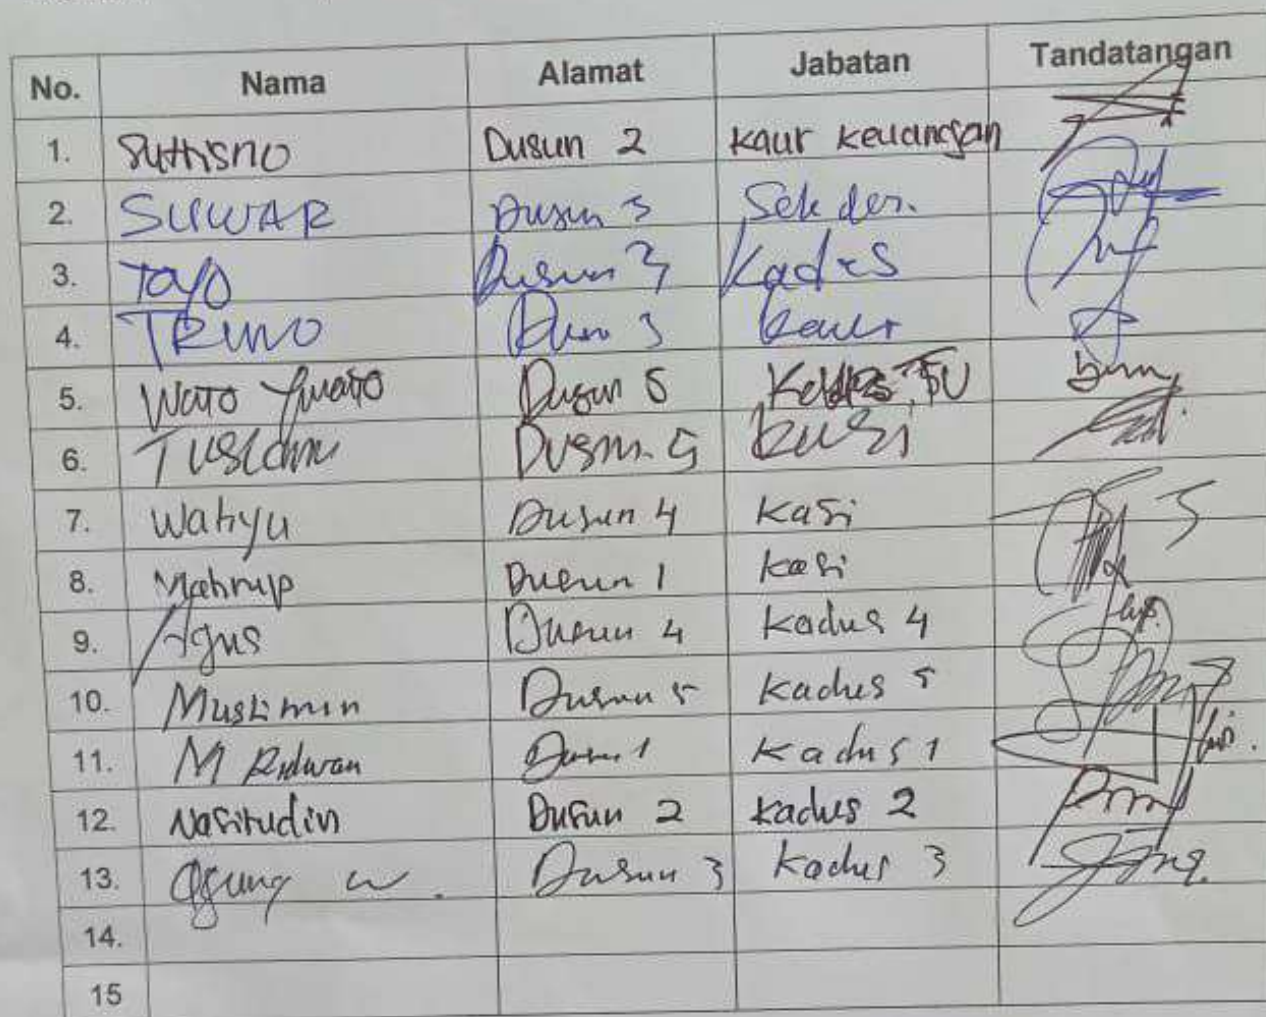 No. Nama Alamat Jabatan Tandatangan
1. Sutrisno Dusun 2 Kaur keuangan
2. SUWAR Dusun 3 Sekdes.
3. TOYO Dusun 3 Kades
4. TRIMO Dusun 3 kaur
5. Wato Yuwato Dusun 5
6. Dusun 5 kasi
7. Wahyu Dusun 4 Kasi
8. Mahrup Dusun 1 kasi
9. Agus Dusun 4 Kadus 4
10. Muslimin Dusun 5 Kadus 5
11. M Ridwan Dusun 1 Kadus 1
12. Nasirudin Dusun 2 Kadus 2
13. Agung W. Dusun 3 Kadus 3
14.
15